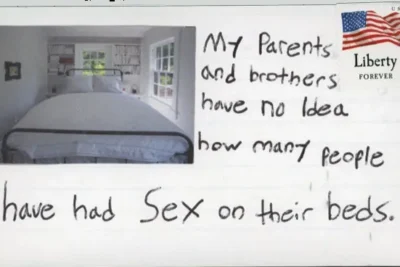 My Parents
and brothers
have no Idea
how many people
have had Sex on their beds.
Liberty
FOREVER